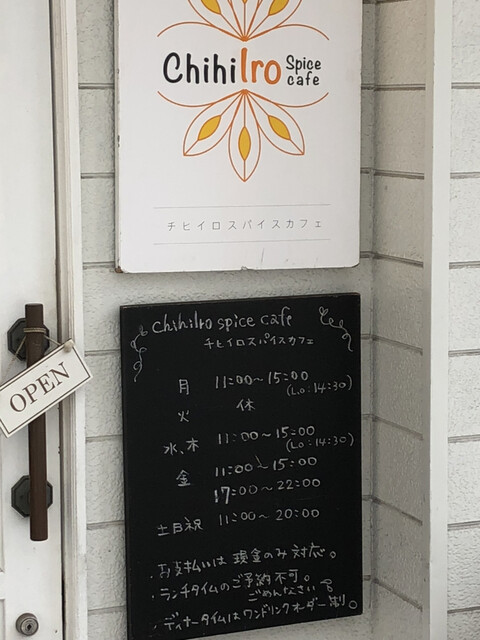 ChihiIro Spice cafe
チヒイロスパイスカフェ
OPEN
chihiIro spice cafe
チヒイロスパイスカフェ
月 11:00〜15:00
(L.o:14:30)
火 休
水、木 11:00〜15:00
(L.o:14:30)
金 11:00〜15:00
17:00〜22:00
土日祝 11:00〜20:00
・お支払いは現金のみ対応。
・ランチタイムのご予約不可。
ごめんなさい
・ディナータイムはワンドリンクオーダー制。